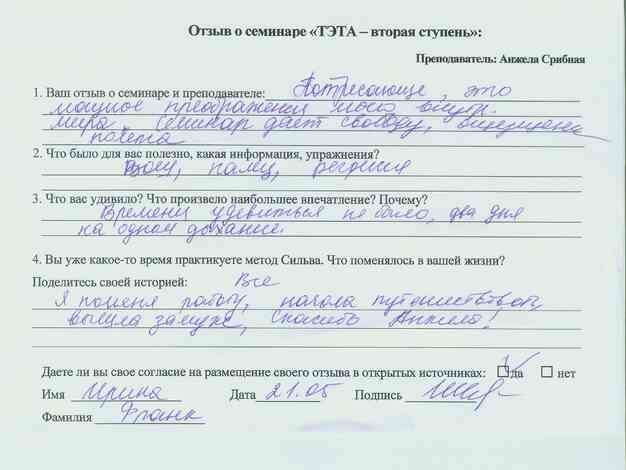 Отзыв о семинаре «ТЭТА – вторая ступень»:
Преподаватель: Анжела Срибная
1. Ваш отзыв о семинаре и преподавателе: Потрясающе, это
мощное преображения моего внутр.
мира. Семинар дает свободу, ощущение
полета
2. Что было для вас полезно, какая информация, упражнения?
регрессия
3. Что вас удивило? Что произвело наибольшее впечатление? Почему?
Времени удивиться не было, два дня
на одном дыхании.
4. Вы уже какое-то время практикуете метод Сильва. Что поменялось в вашей жизни?
Поделитесь своей историей: Все
Я поменя работу, начала путешествовать,
вышла замуж, Спасибо Анжела!
Даете ли вы свое согласие на размещение своего отзыва в открытых источниках: да нет
Имя Ирина Дата 21.05 Подпись
Фамилия Франк